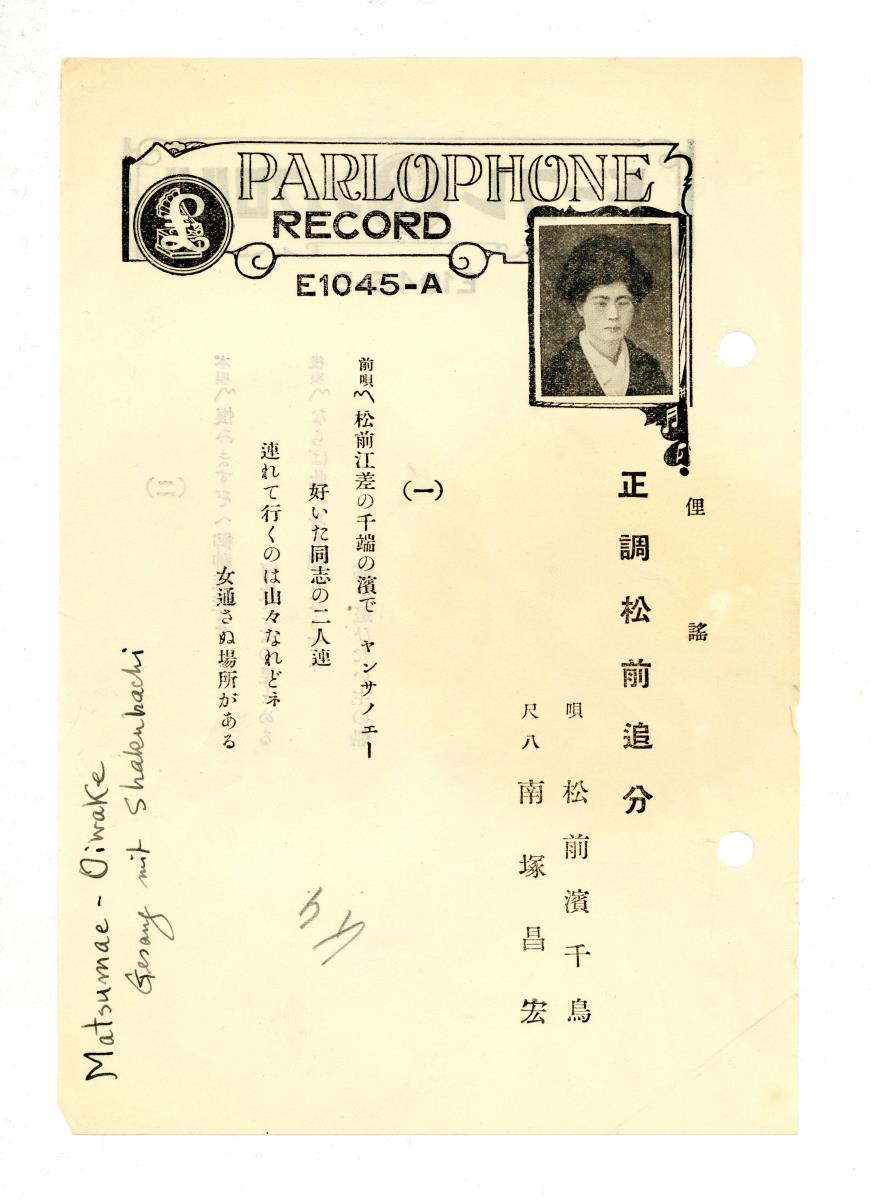 PARLOPHONE
RECORD
E1045-A
俚謠
正調松前追分
唄 松前濱千鳥
尺八 南塚昌宏
(一)
前唄〽松前江差の千端の濱で ヤンサノエー
好いた同志の二人連
連れて行くのは山々なれどネ
女通さぬ場所がある
Matsumae - Oiwake
Gesang mit Shakuhachi